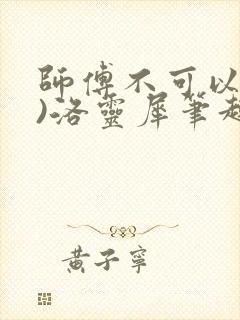 師傅不可以
)洛靈犀筆趣
黃子寧